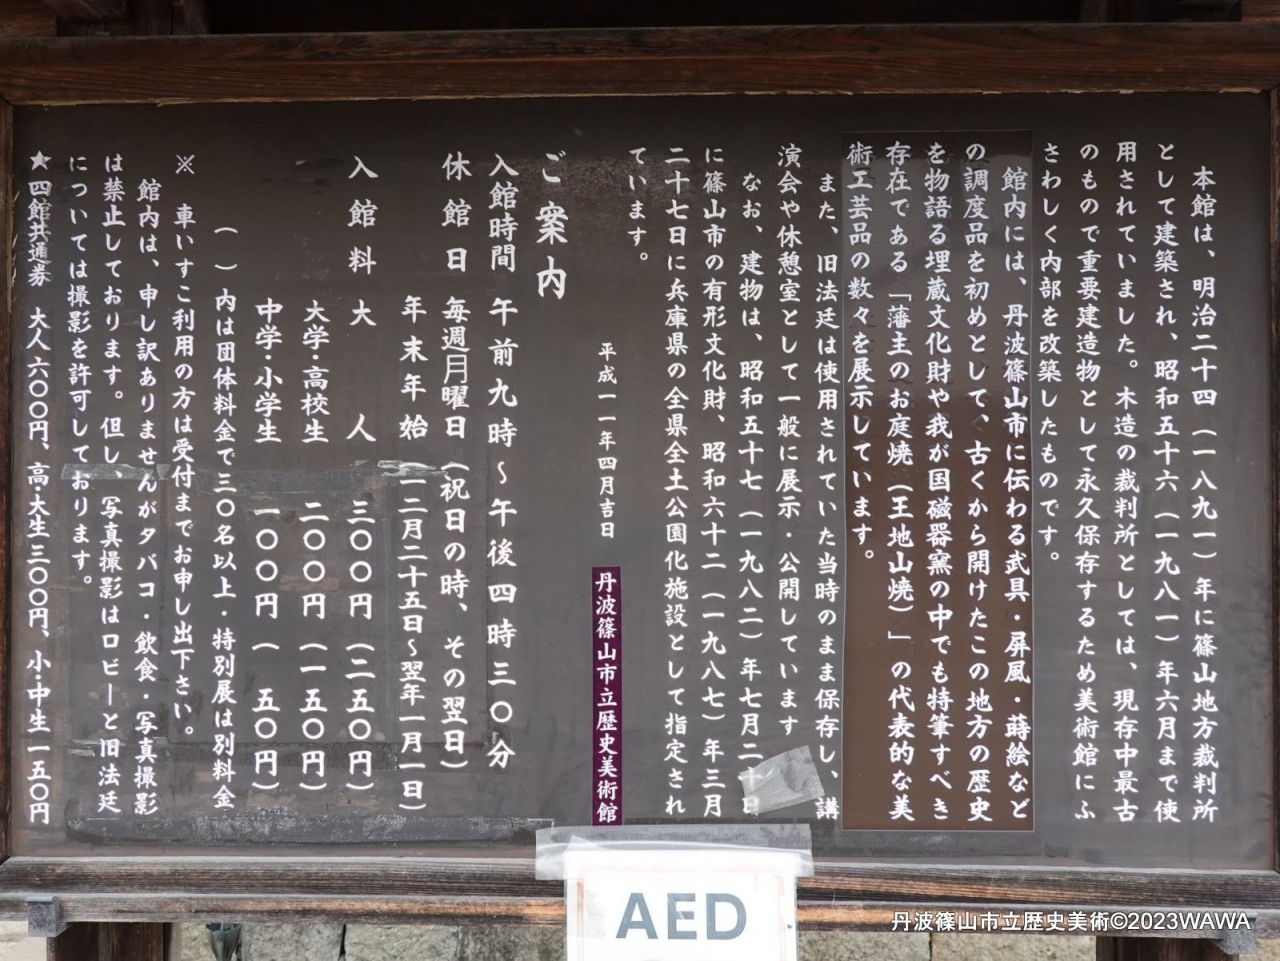 本館は、明治二十四（一八九一）年に篠山地方裁判所
として建築され、昭和五十六（一九八一）年六月まで使
用されていました。木造の裁判所としては、現存中最古
のもので重要建造物として永久保存するため美術館にふ
さわしく内部を改築したものです。
館内には、丹波篠山市に伝わる武具・屏風・蒔絵など
の調度品を初めとして、古くから開けたこの地方の歴史
を物語る埋蔵文化財や我が国磁器窯の中でも特筆すべき
存在である「藩主のお庭焼（王地山焼）」の代表的な美
術工芸品の数々を展示しています。
また、旧法廷は使用されていた当時のまま保存し、講
演会や休憩室として一般に展示・公開しています
なお、建物は、昭和五十七（一九八二）年七月二十日
に篠山市の有形文化財、昭和六十二（一九八七）年三月
二十七日に兵庫県の全県全土公園化施設として指定され
ています。
平成一一年四月吉日
丹波篠山市立歴史美術館
ご案内
入館時間 午前九時～午後四時三〇分
休館日 毎週月曜日（祝日の時、その翌日）
年末年始（一二月二十五日～翌年一月一日）
入館料 大人 三〇〇円（二五〇円）
大学・高校生 二〇〇円（一五〇円）
中学・小学生 一〇〇円（ 五〇円）
（ ）内は団体料金で三〇名以上・特別展は別料金
※ 車いすご利用の方は受付までお申し出下さい。
館内は、申し訳ありませんがタバコ・飲食・写真撮影
は禁止しております。但し、写真撮影はロビーと旧法廷
については撮影を許可しております。
★四館共通券 大人六〇〇円、高・大生三〇〇円、小・中生一五〇円
AED
丹波篠山市立歴史美術©2023WAWA